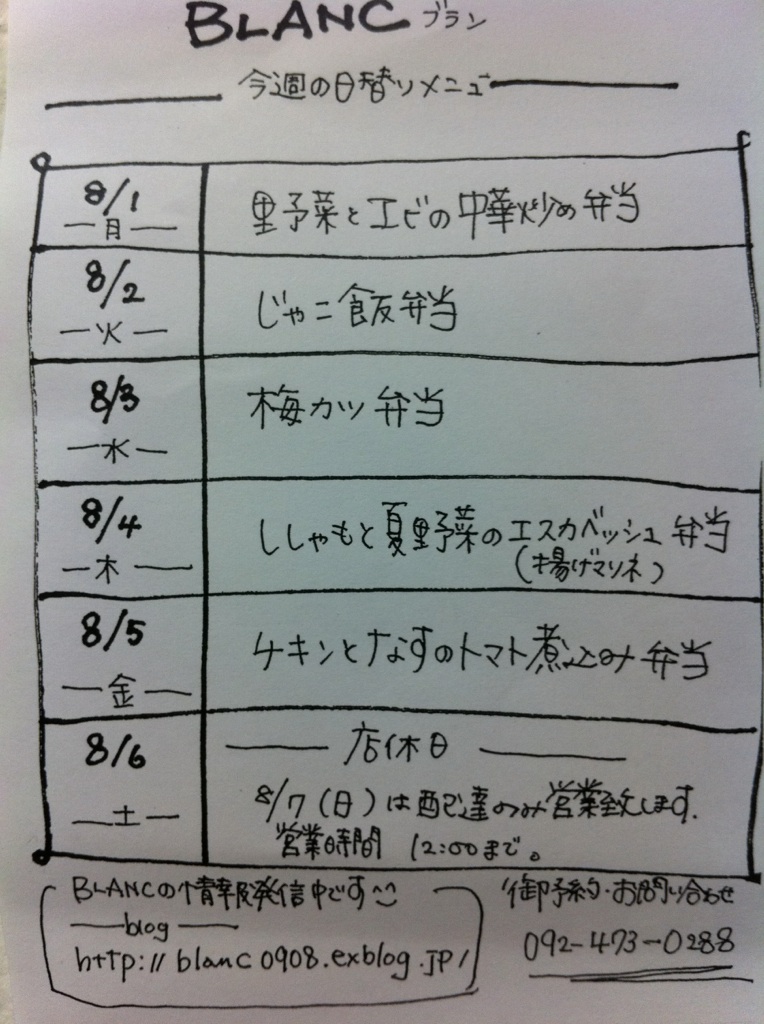 BLANC ブラン
今週の日替りメニュー
8/1
月
野菜とエビの中華炒め弁当
8/2
火
じゃこ飯弁当
8/3
水
梅カツ弁当
8/4
木
ししゃもと夏野菜のエスカベッシュ弁当
(揚げマリネ)
8/5
金
チキンとなすのトマト煮込み弁当
8/6
土
店休日
8/7(日)は配達のみ営業致します.
営業時間 12:00まで。
BLANCの情報発信中です
blog
http://blanc0908.exblog.jp/
御予約・お問い合わせ
092-473-0288